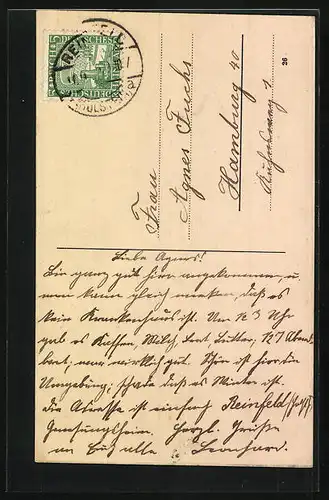 REINFELD
DEUTSCHES REICH
Frau
Agnes Fuchs
Hamburg 40
26
Liebe Agnes!
Bin ganz gut hier angekommen, u.
man kann gleich merken, daß es
kein Krankenhaus ist. Um ½ 3 Uhr
gab es Kaffee, Milch, Brot, Butter, ½ 7 Abend-
brot, war wirklich gut. Schön ist hier die
Umgebung, schade daß es Winter ist.
Die Adresse ist einfach Reinfeld
Genesungsheim. Herzl. Grüße
an Euch alle